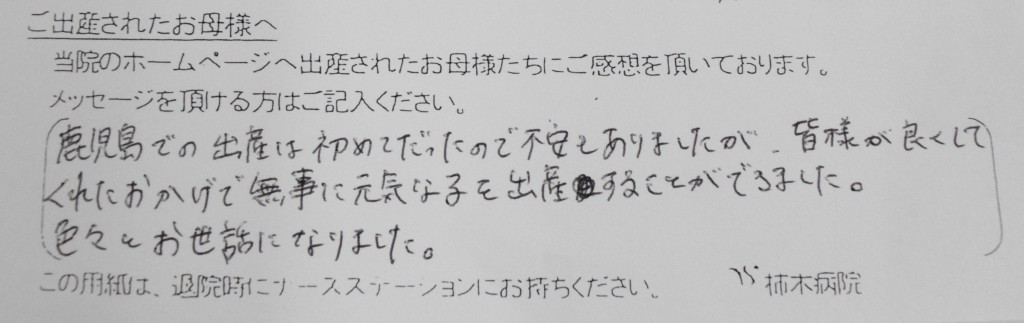 ご出産されたお母様へ
当院のホームページへ出産されたお母様たちにご感想を頂いております。
メッセージを頂ける方はご記入ください。
鹿児島での出産は初めてだったので不安もありましたが、皆様が良くして
くれたおかげで無事に元気な子を出産することができました。
色々とお世話になりました。
この用紙は、退院時にナースステーションにお持ちください。 柿木病院